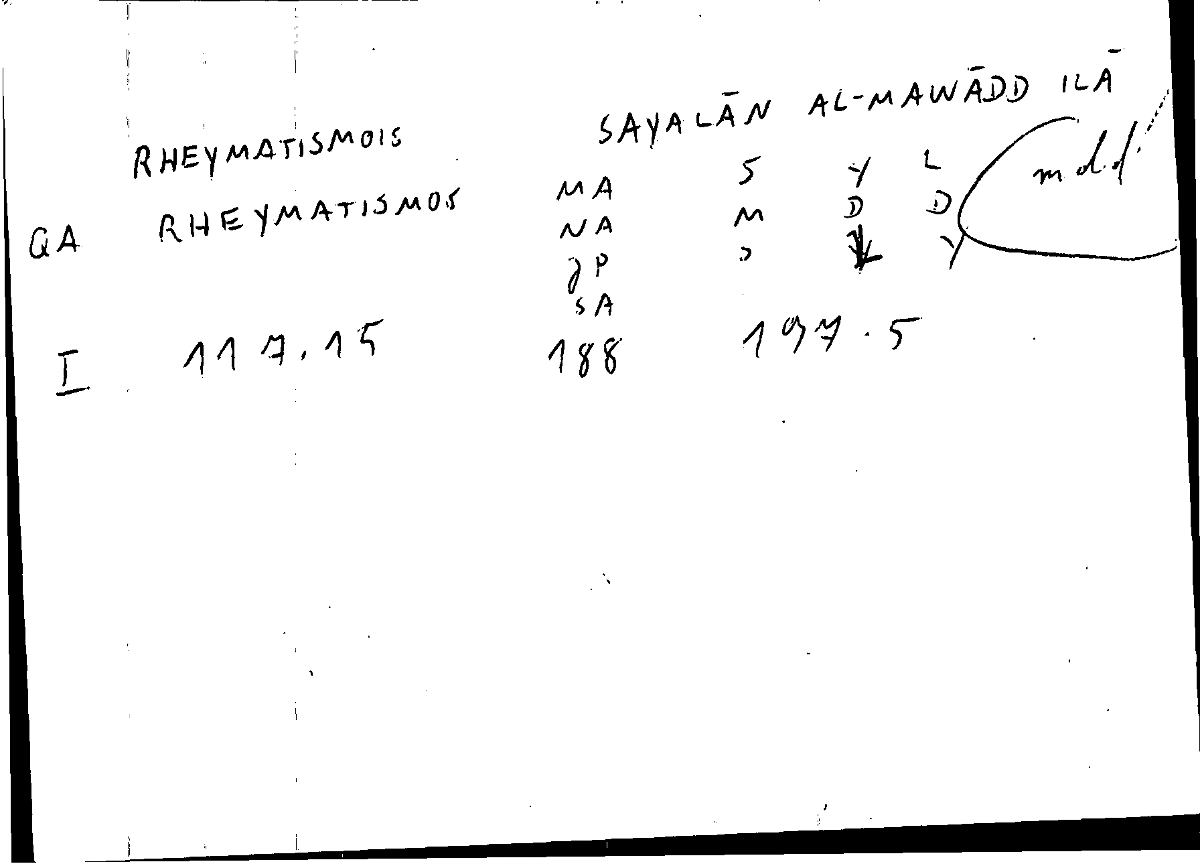 RHEYMATISMOIS SAYALĀN AL-MAWĀDD ILĀ
QA RHEYMATISMOS MA S Y L mdd
NA M D D
JP Y
SA
I 117.15 188 197.5